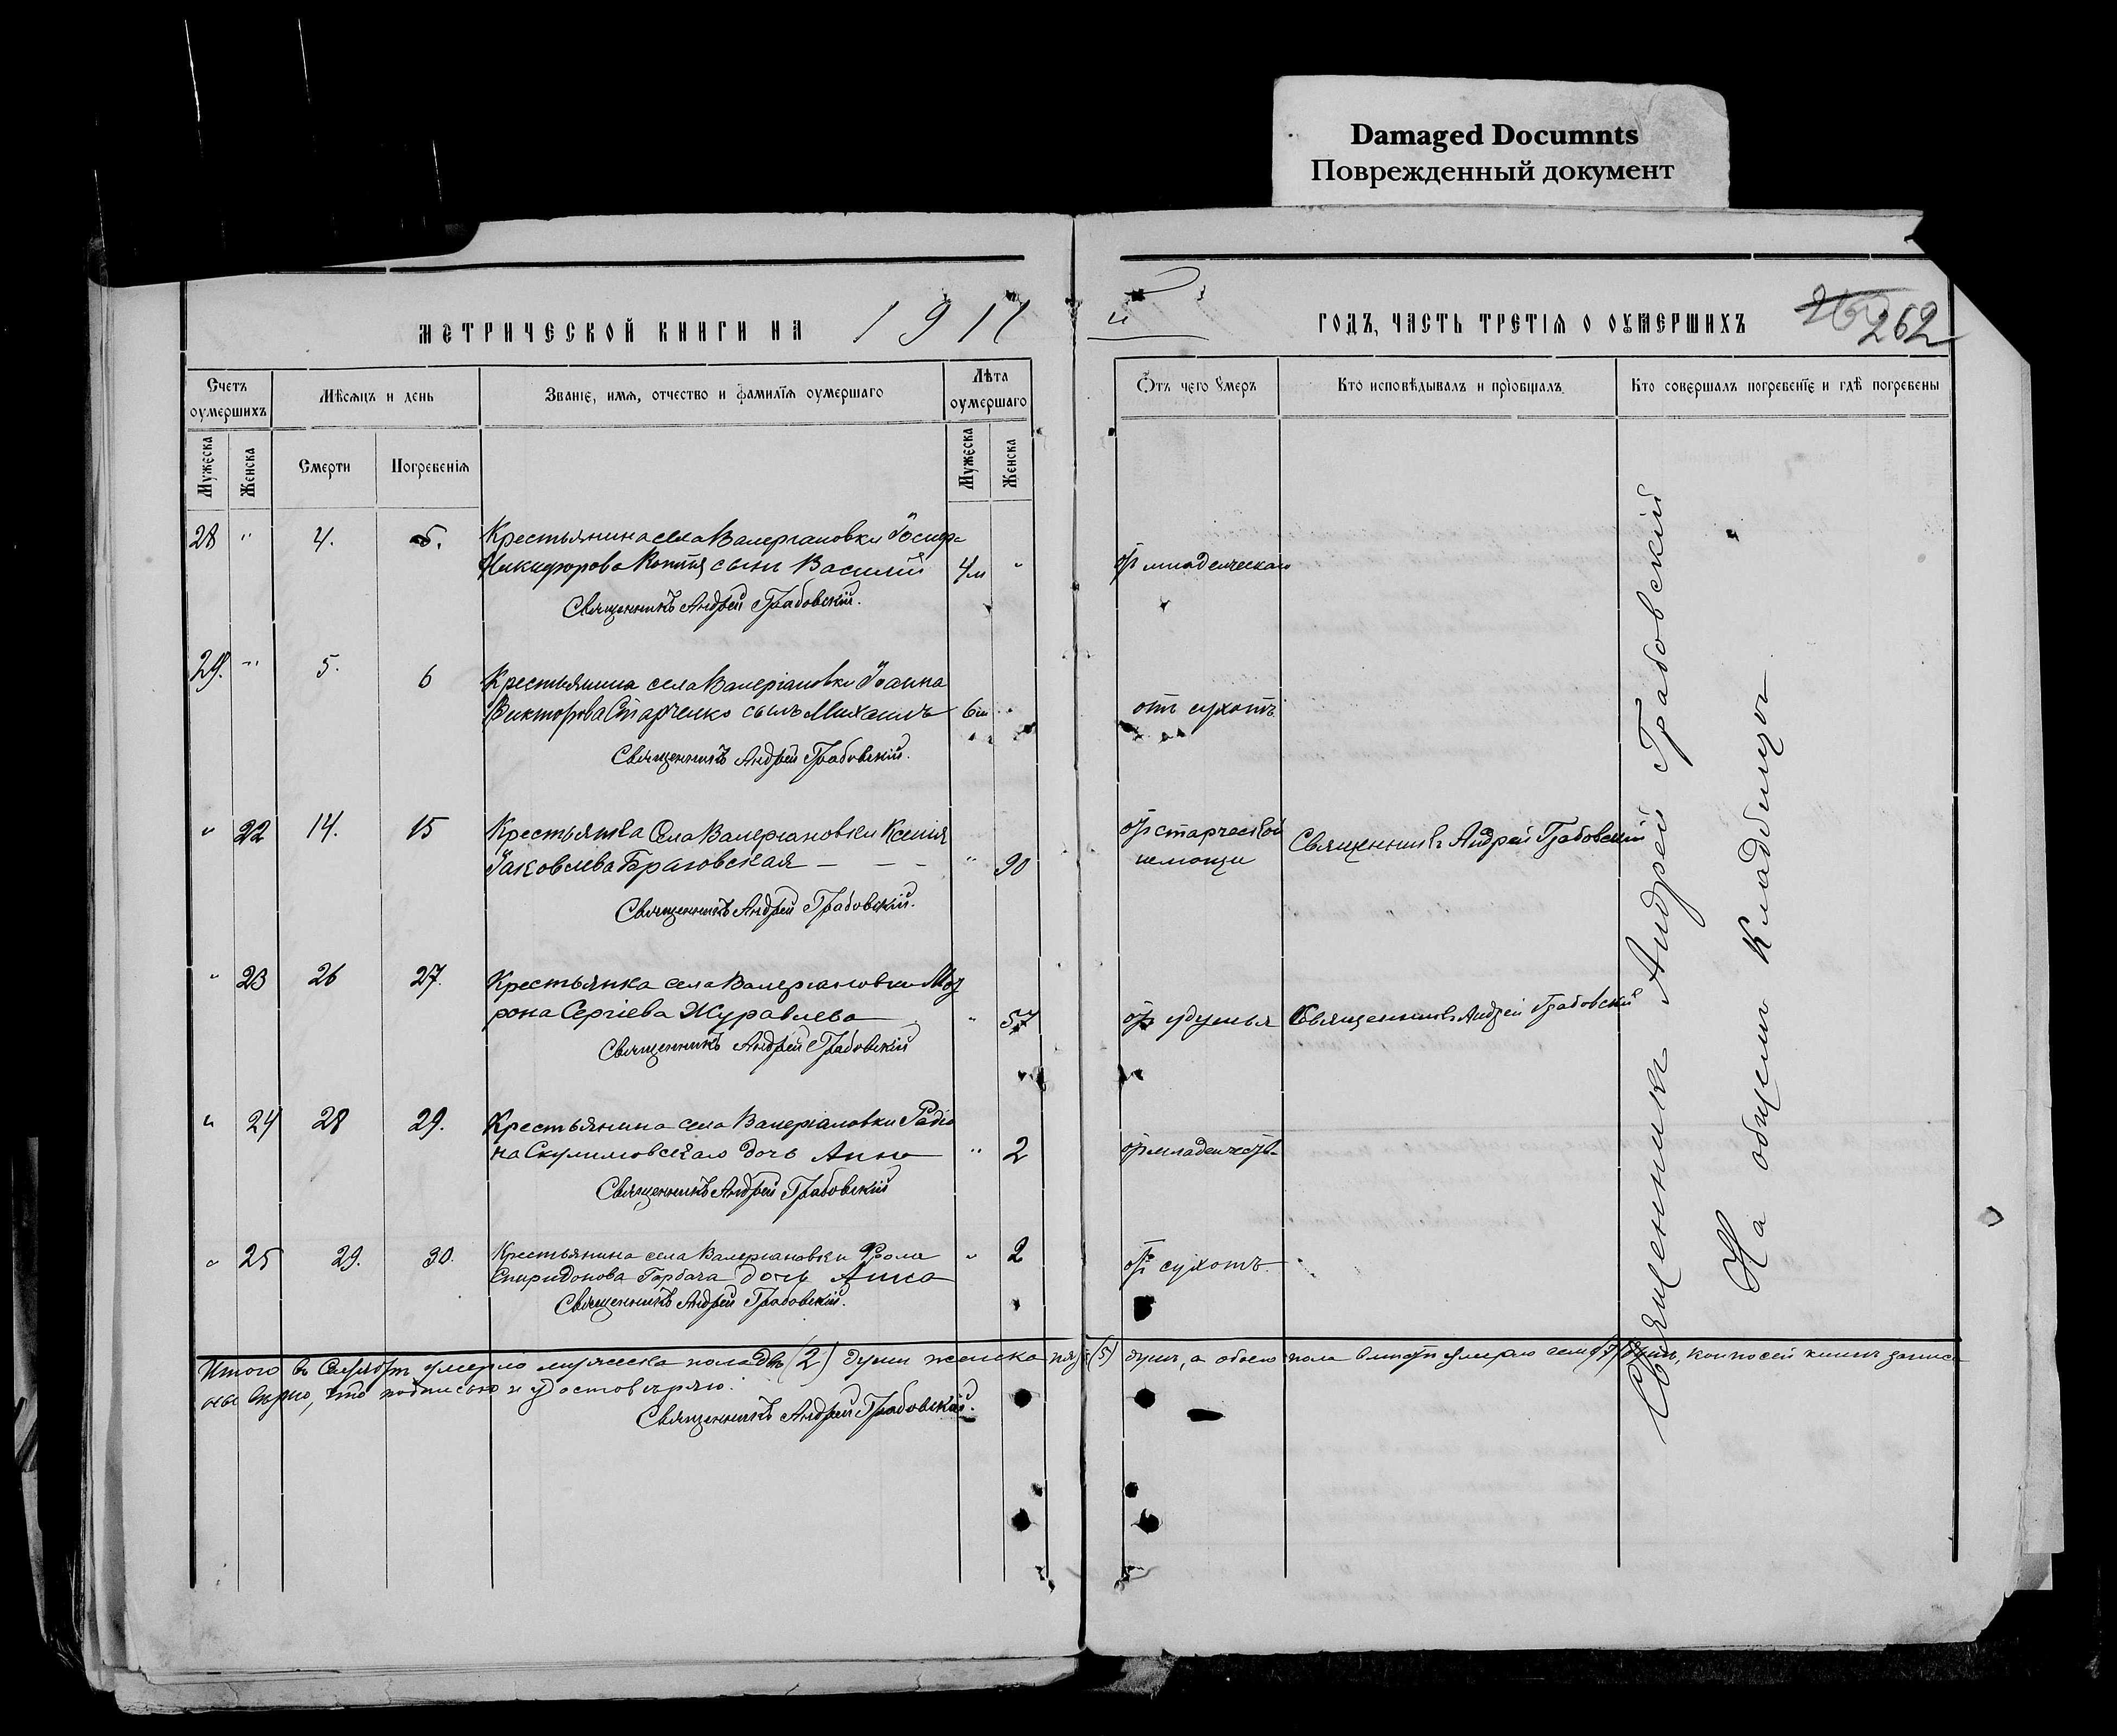 Damaged Documnts
Поврежденный документ
МЕТРИЧЕСКОЙ КНИГИ НА 191
ГОДЪ, ЧАСТЬ ТРЕТІЯ О ОУМЕРШИХЪ
262
Счетъ оумершихъ
Мѣсяцъ и день
Званіе, имя, отчество и фамилія оумершаго
Лѣта оумершаго
Отъ чего умеръ
Кто исповѣдывалъ и пріобщалъ
Кто совершалъ погребеніе и гдѣ погребены
Мужеска
Женска
Смерти
Погребенія
Мужеска
Женска
28 " 4. Крестьянина села Валеріановки Іосифа
Никифорова сынъ Василій 4м " младенческаго
Священникъ Андрей Грабовскій.
29. " 5. 6 Крестьянина села Валеріановки Іоанна
Викторова Старченко сынъ Михаилъ 6м " отъ сухотъ
Священникъ Андрей Грабовскій.
" 22 14. 15 Крестьянка села Валеріановки Ксенія от старческой
Іаковлева Браговская — — — " 90 немощи Священникъ Андрей Грабовскій
Священникъ Андрей Грабовскій.
" 23 26 27. Крестьянка села Валеріановки Мат
рона Сергіева Журавлева " 57 от удушья Священникъ Андрей Грабовскій
Священникъ Андрей Грабовскій
" 24 28 29. Крестьянина села Валеріановки Радіо
на Скулимовскаго дочь Анна " 2 от младенчест.
Священникъ Андрей Грабовскій
" 25 29. 30. Крестьянина села Валеріановки Фрола " 2
Спиридонова Горбача дочь Анна от сухотъ
Священникъ Андрей Грабовскій.
Священникъ Андрей Грабовскій
На общемъ кладбищѣ
Итого въ умерло мужеска пола двѣ (2) души женска пять (5) душъ, а обоего пола умерло семь (7) душъ, кои по сей книгѣ записа
ны вѣрно, что подписью и удостовѣряю.
Священникъ Андрей Грабовскій.